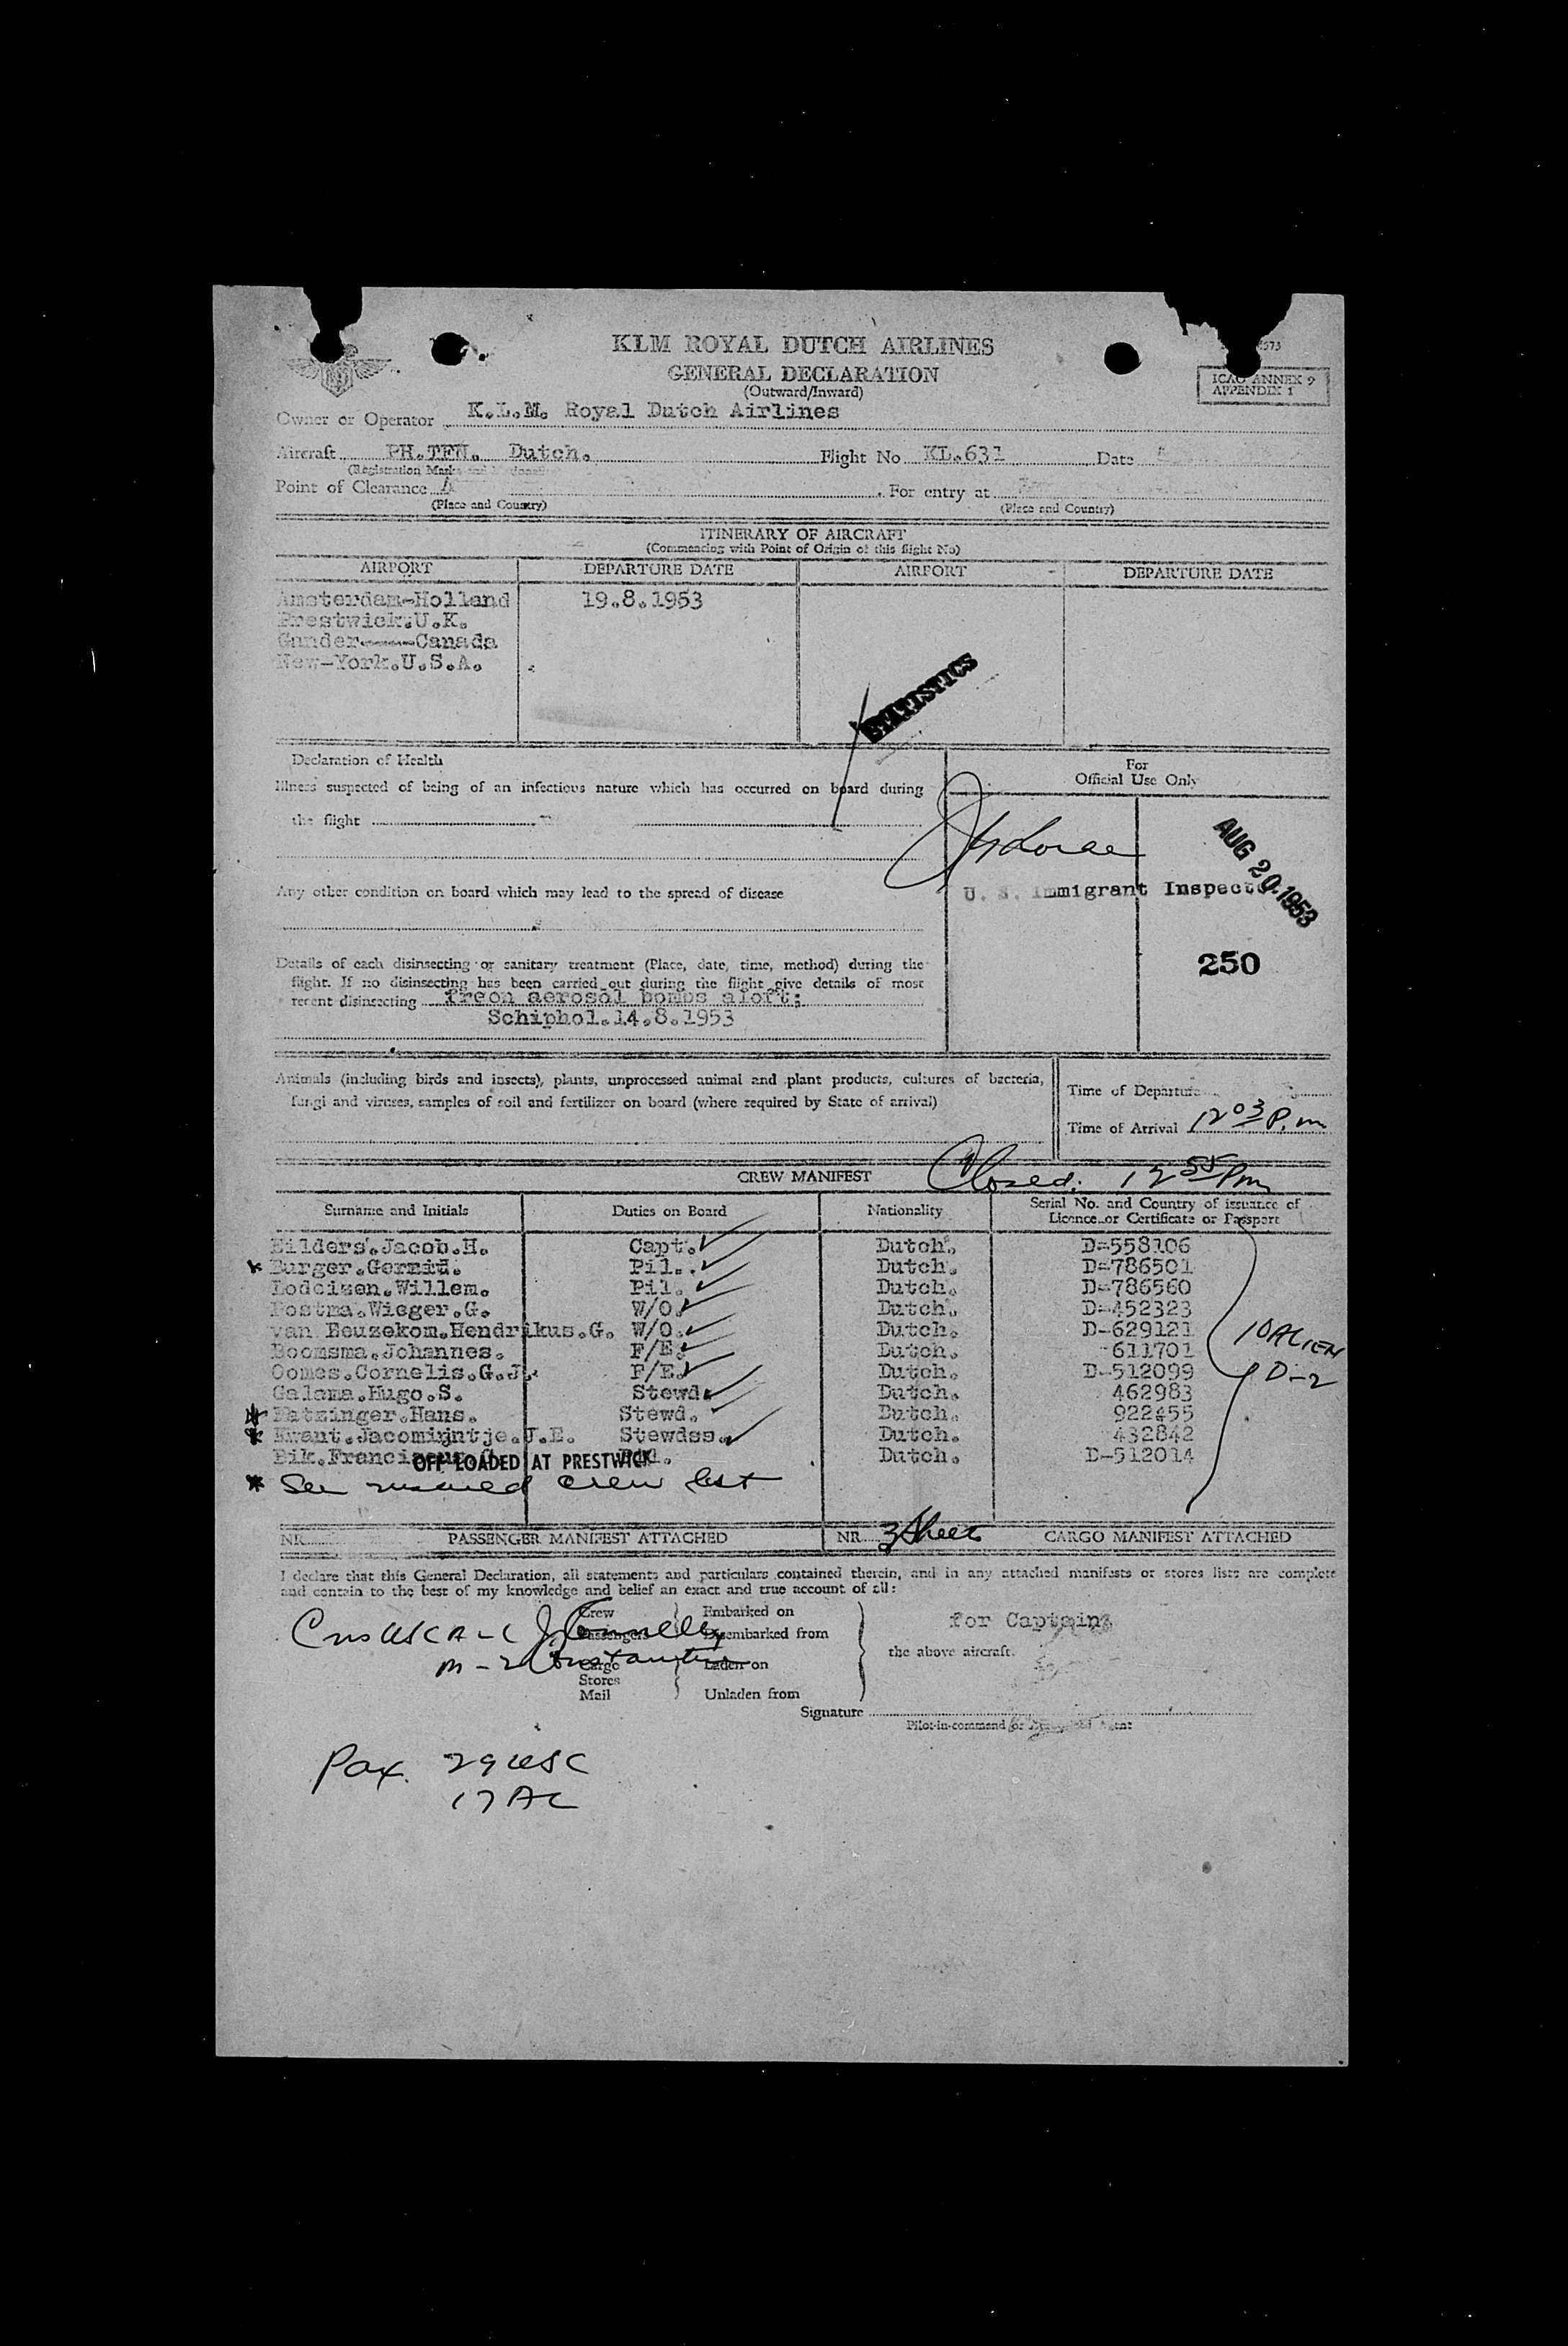 KLM ROYAL DUTCH AIRLINES
GENERAL DECLARATION
(Outward/Inward)
ICAO ANNEX 9
APPENDIX 1
Owner or Operator K.L.M. Royal Dutch Airlines
Aircraft PH.TFN. Dutch. Flight No KL.631 Date
(Registration Marks and
Point of Clearance For entry at
(Place and Country) (Place and Country)
ITINERARY OF AIRCRAFT
(Commencing with Point of Origin of this flight No)
AIRPORT DEPARTURE DATE AIRPORT DEPARTURE DATE
Amsterdam-Holland 19.8.1953
Prestwick.U.K.
Gander----Canada
New-York.U.S.A.
STATISTICS
Declaration of Health
For
Official Use Only
Illness suspected of being of an infectious nature which has occurred on board during
the flight
Any other condition on board which may lead to the spread of disease
U. S. Immigrant Inspector
AUG 20 1953
250
Details of each disinsecting or sanitary treatment (Place, date, time, method) during the
flight. If no disinsecting has been carried out during the flight give details of most
recent disinsecting freon aerosol bombs aloft:
Schiphol.14.8.1953
Animals (including birds and insects), plants, unprocessed animal and plant products, cultures of bacteria,
fungi and viruses, samples of soil and fertilizer on board (where required by State of arrival)
Time of Departure
Time of Arrival 12 03 P.m
CREW MANIFEST Closed: 12 55 Pm
Surname and Initials Duties on Board Nationality Serial No. and Country of issuance of
Licence or Certificate or Passport
Eilders.Jacob.H. Capt. Dutch. D-558106
Burger.Gerrit. Pil. Dutch. D-786501
Lodeizen.Willem. Pil. Dutch. D-786560
Postma.Wieger.G. W/O. Dutch. D-452323
van Beuzekom.Hendrikus.G. W/O. Dutch. D-629121
Boomsma.Johannes. F/E. Dutch. 611701
Oomes.Cornelis.G.J. F/E. Dutch. D-512099
Galama.Hugo.S. Stewd. Dutch. 462983
* Fatzinger.Hans. Stewd. Dutch. 922455
* Kwant.Jacomijntje.J.E. Stewdss. Dutch. 432842
Dutch. D-512014
10 ALIEN
D-2
OFF LOADED AT PRESTWICK
* See revised crew list
NR. PASSENGER MANIFEST ATTACHED NR 3 Sheet CARGO MANIFEST ATTACHED
I declare that this General Declaration, all statements and particulars contained therein, and in any attached manifests or stores lists are complete
and contain to the best of my knowledge and belief an exact and true account of all:
Crew Embarked on
Passengers Disembarked from
Cargo Laden on
Stores
Mail Unladen from
for Captain
the above aircraft.
Signature
Pilot-in-command or
Pax. 29 USC
17 AL